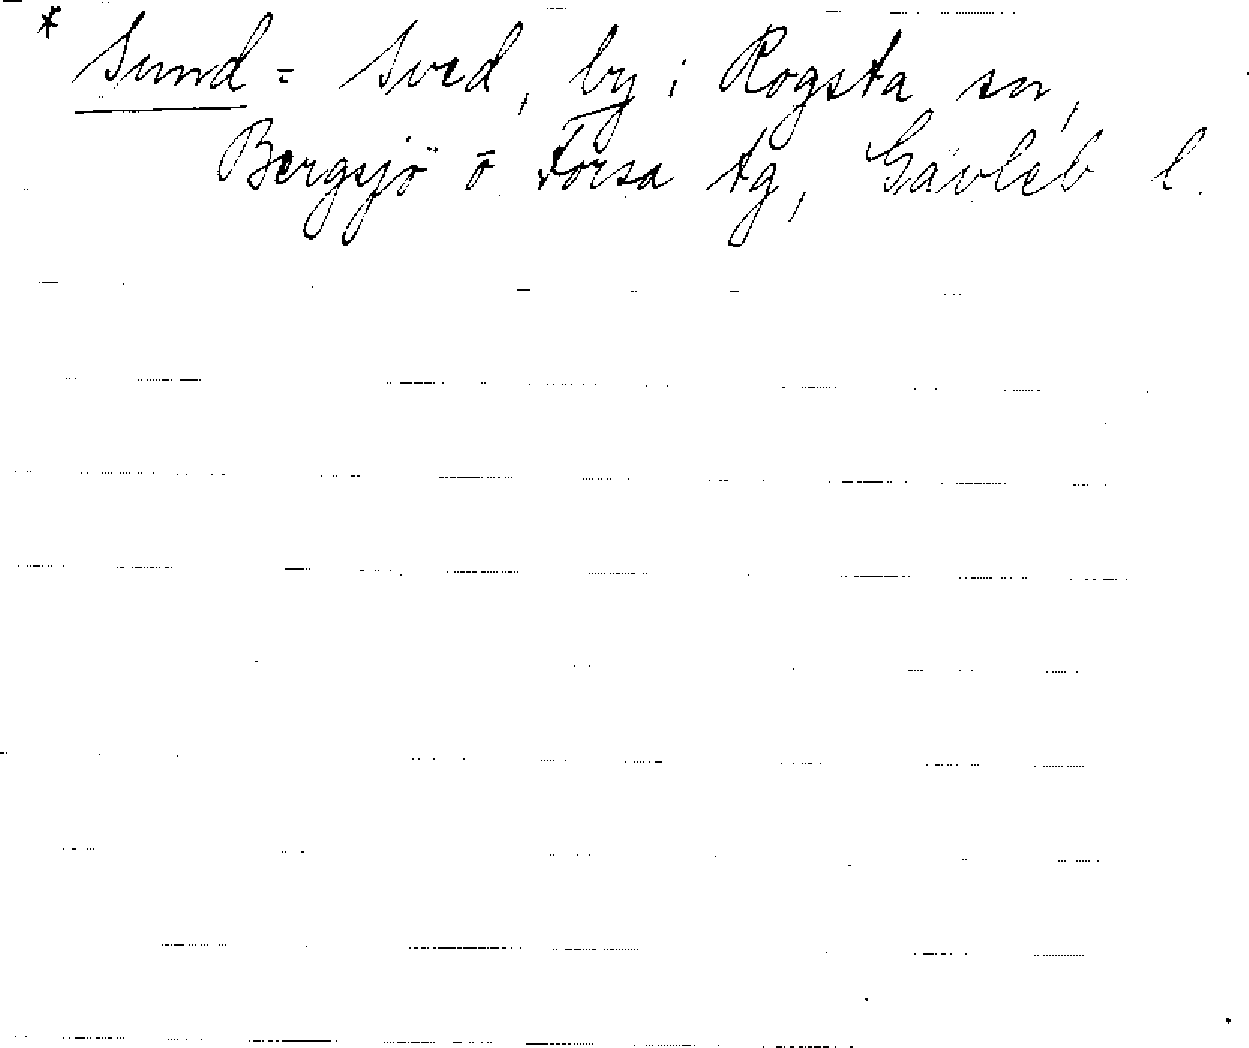 * Sund = Sved, by i Rogsta sn,
Bergsjö o Forsa tg, Gävleb l.